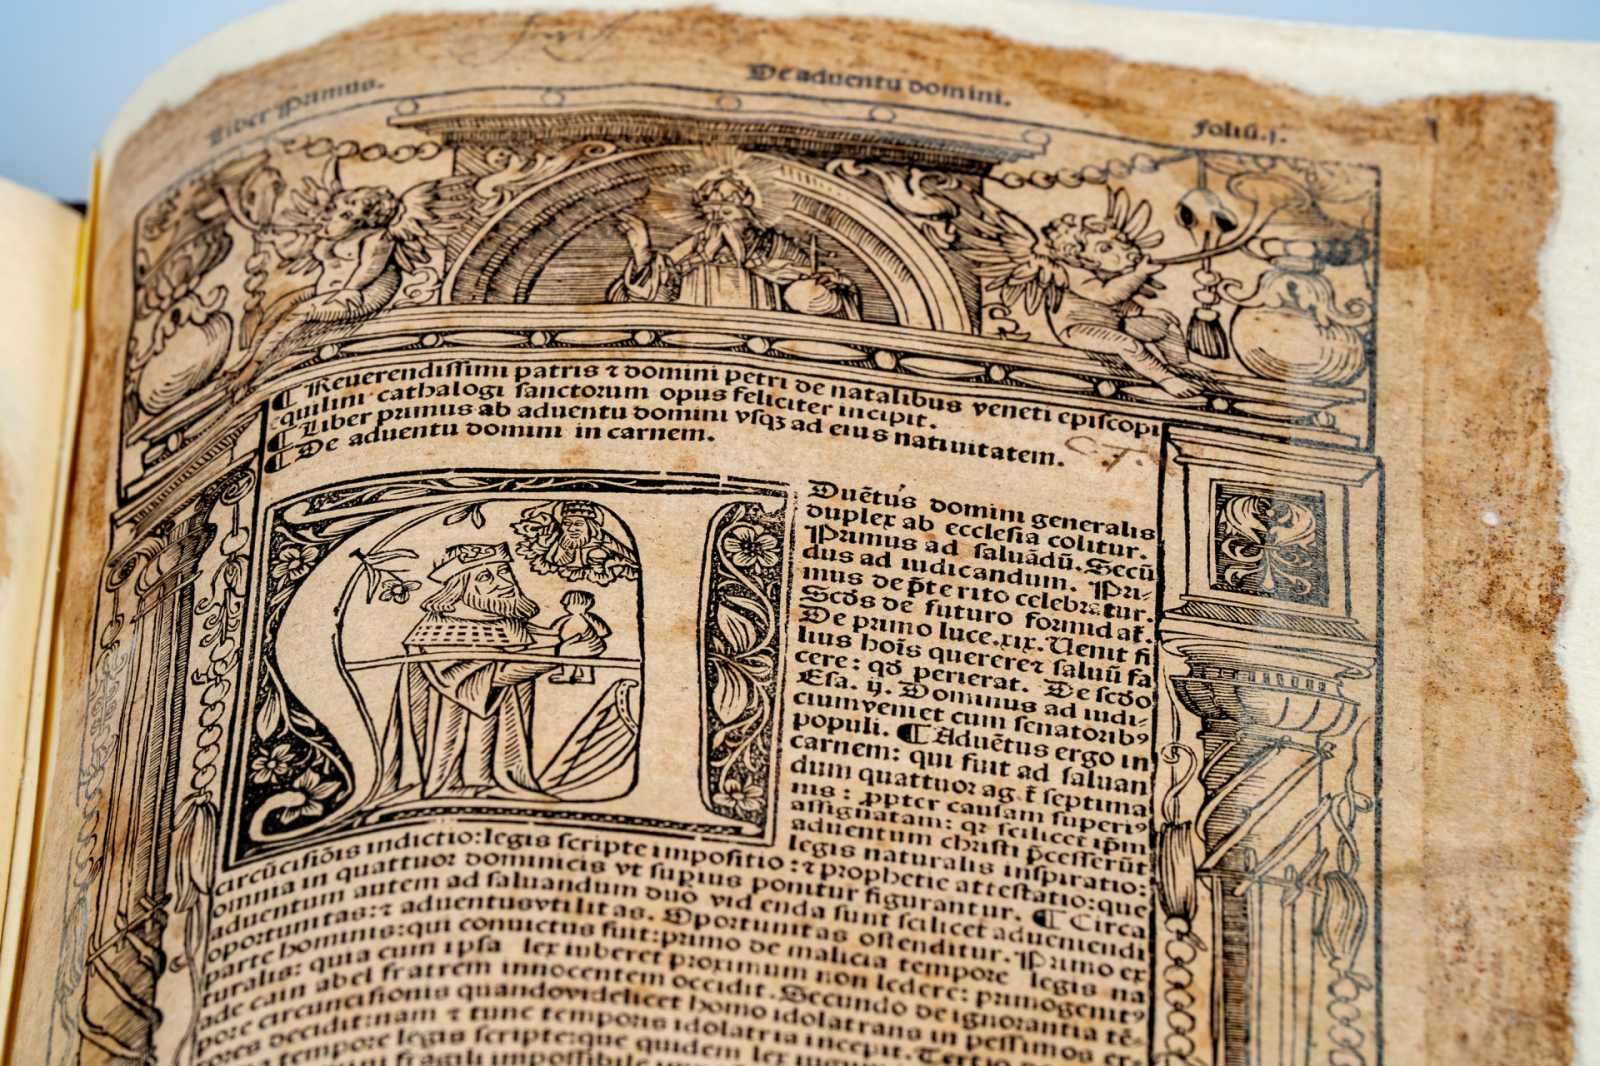 Liber Primus.
De aduentu domini.
Foliū.j.
¶ Reuerendissimi patris ⁊ domini petri de natalibus veneti episcopi
equilini cathalogi sanctorum opus feliciter incipit.
¶ Liber primus ab aduentu domini vsqꝫ ad eius natiuitatem.
¶ De aduentu domini in carnem.
C.T.
A
Duētus domini generalis
duplex ab ecclesia colitur.
Primus ad saluādū. Secū
dus ad iudicandum. Pri-
mus de p̄terito celebratur.
Scd̄s de futuro formidat̄.
De primo luce.xix. Uenit fi
lius hoīs querere ⁊ saluū fa
cere: qd̄ perierat. De scd̄o
Esa. ij. Dominus ad iudi-
cium veniet cum senatoribꝰ
populi. ¶ Aduētus ergo in
carnem: qui fuit ad saluan
dum quattuor ag.t̄ septima
nis: ꝓpter causam superiꝰ
assignatam: qꝛ scilicet ip̄m
aduentum christi p̄cesserūt
legis naturalis inspiratio:
circūcisiōis indictio: legis scripte impositio: ⁊ prophetie attestatio: que
omnia in quattuor dominicis vt supius ponitur figurantur. ¶ Circa
aduentum autem ad saluandum duo videnda sunt scilicet adueniendi
oportunitas: ⁊ aduentus vtilitas. Oportunitas ostenditur. Primo ex
parte hominis: qui conuictus fuit: primo de malicia tempore legis na
turalis: quia cum ipsa lex iuberet proximum non ledere: primogenitꝰ
ade cain abel fratrem innocentem occidit. Secundo de ignorantia tē-
pore circuncisionis quando videlicet homo idolatrans in pessimos er-
rores decidit: nam ⁊ tunc temporis idolatria incepit. Tertio
tempore legis scripte: que quidem lex
fragili impossibile